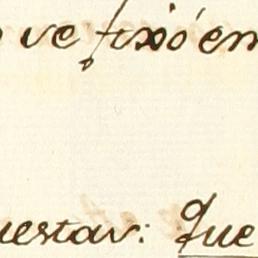 ve fixó en
uestav: Que